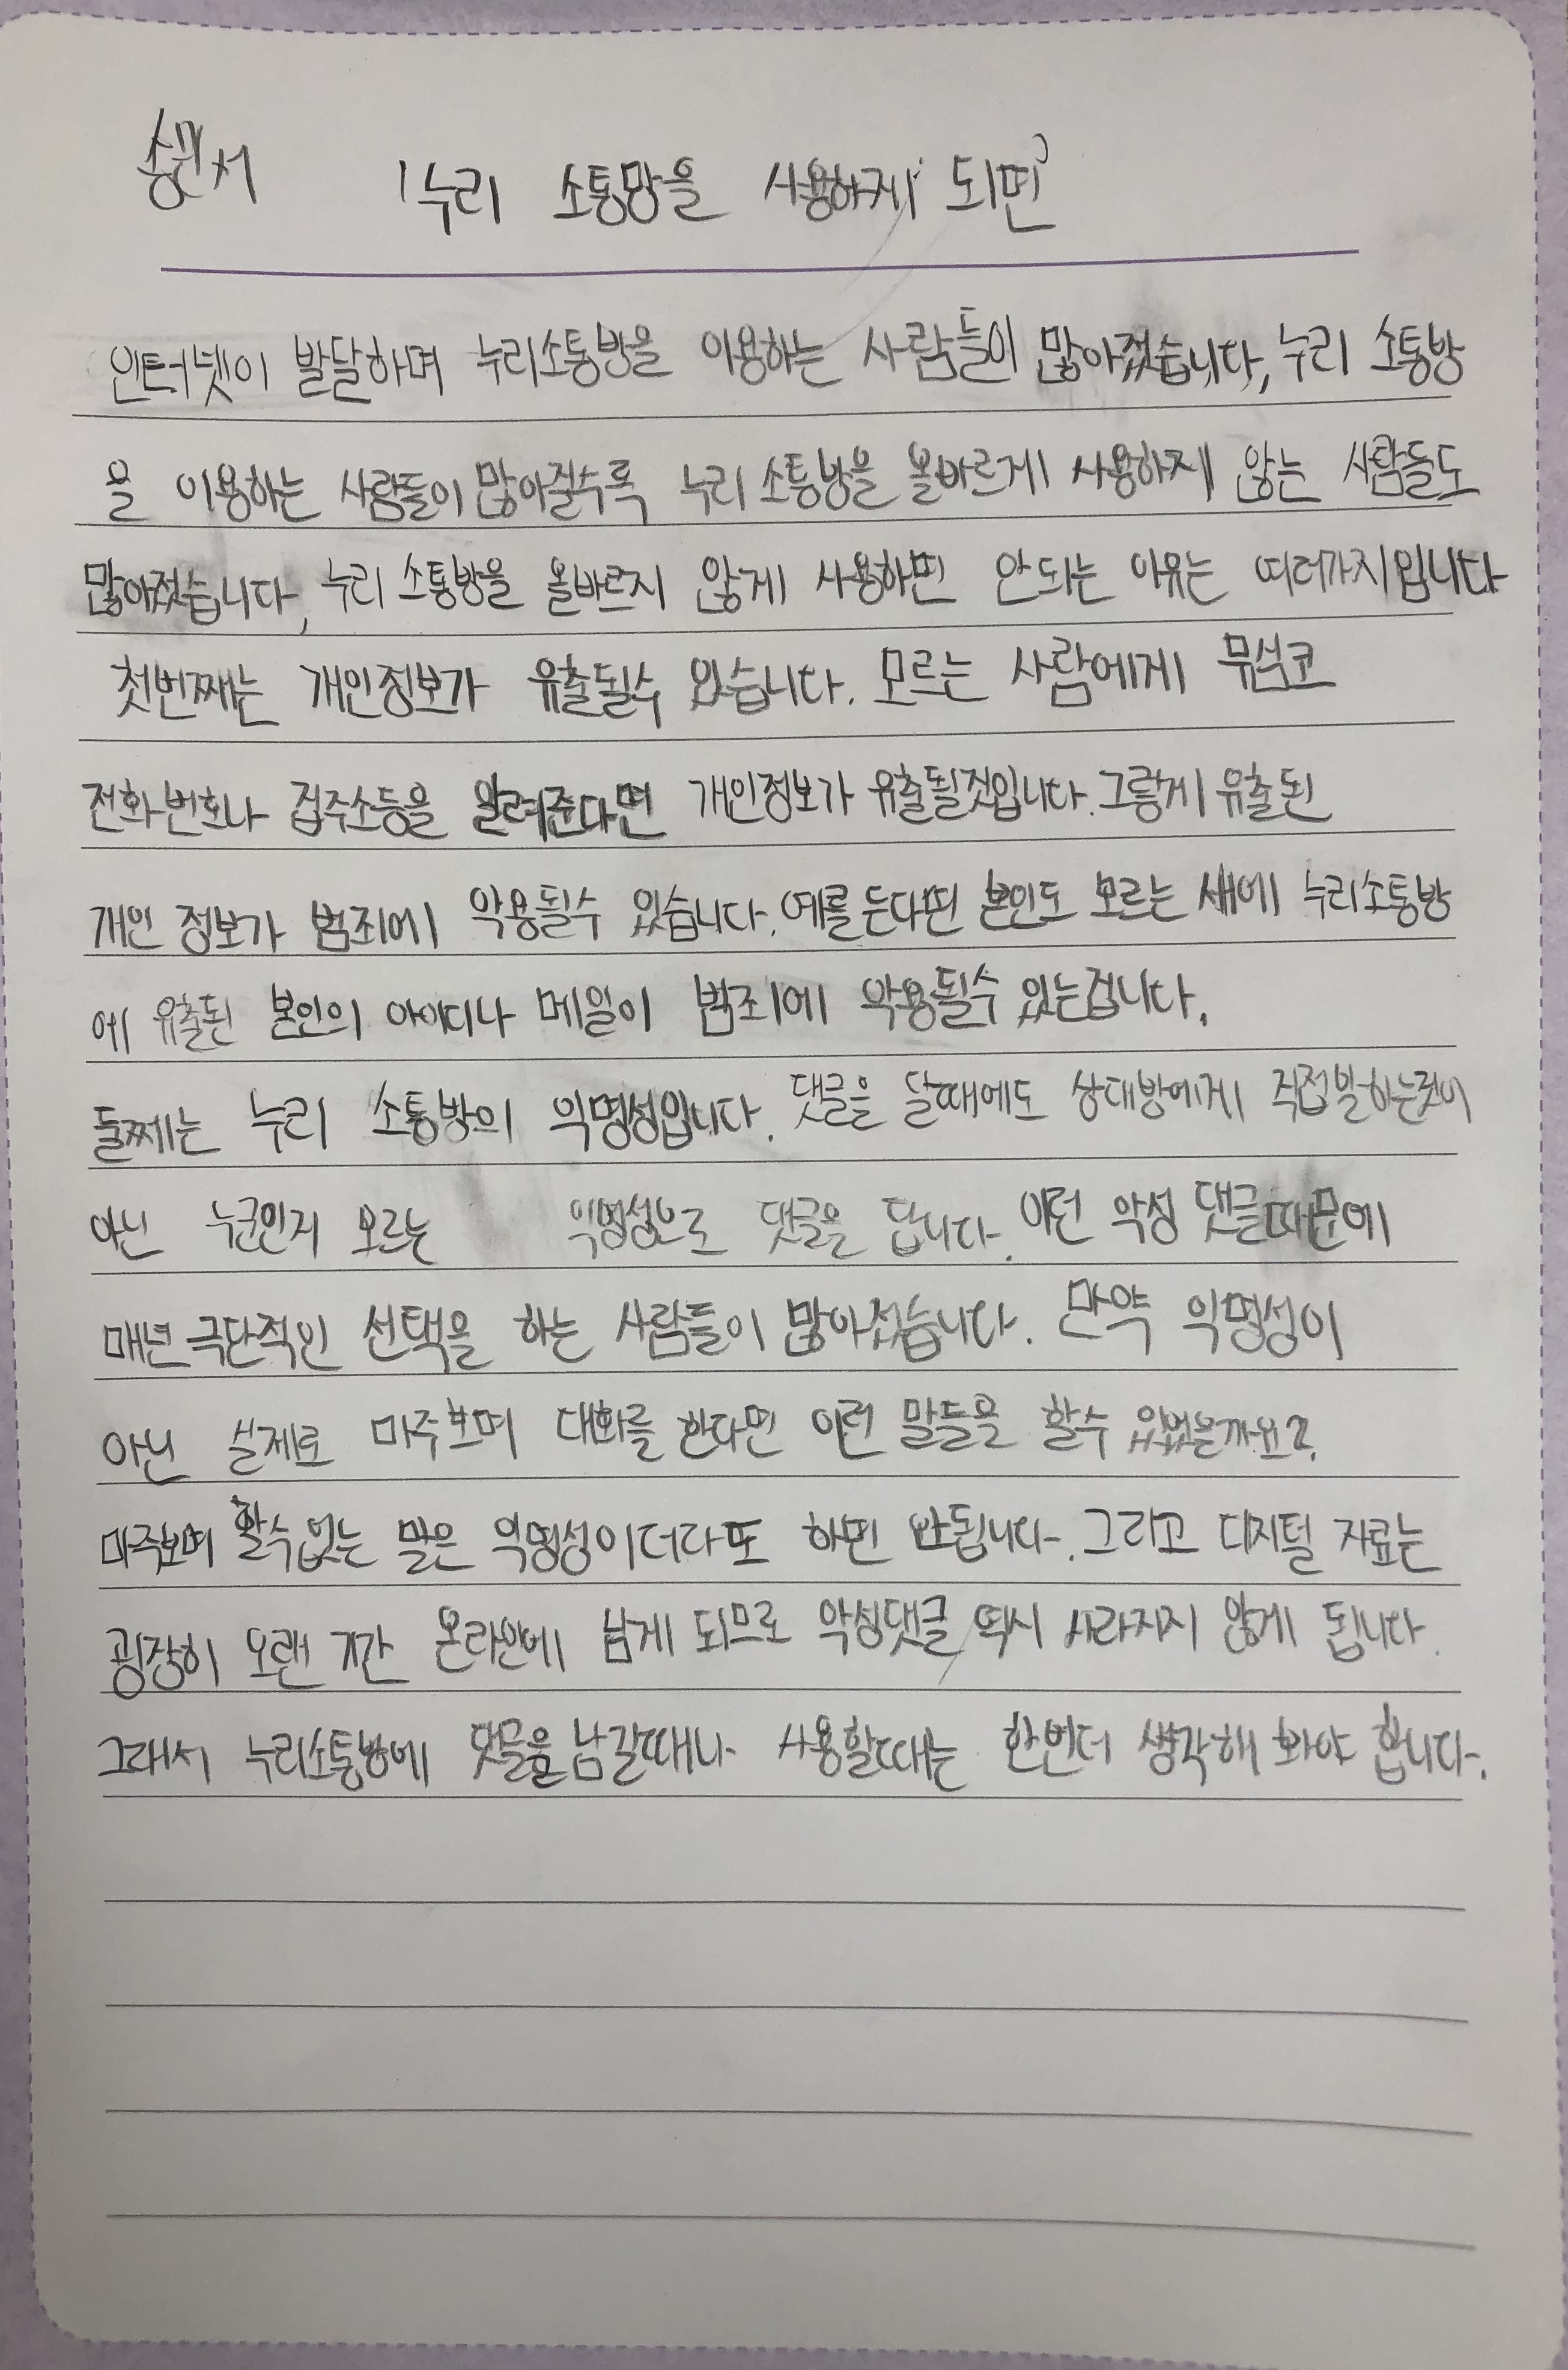 '누리 소통망을 사용하게 되면'
인터넷이 발달하며 누리소통방을 이용하는 사람들이 많아졌습니다, 누리 소통방
을 이용하는 사람들이 많아질수록 누리 소통방을 올바르게 사용하지 않는 사람들도
많아졌습니다, 누리 소통방을 올바르지 않게 사용하면 안되는 이유는 여러가지입니다
첫번째는 개인정보가 유출될수 있습니다. 모르는 사람에게 무심코
전화번호나 집주소등을 알려준다면 개인정보가 유출될것입니다. 그렇게 유출된
개인 정보가 범죄에 악용될수 있습니다. 예를 든다면 본인도 모르는 새에 누리소통방
에 유출된 본인의 아이디나 메일이 범죄에 악용될수 있는겁니다.
둘째는 누리 소통방의 익명성입니다. 댓글을 달때에도 상대방에게 직접말하는것이
아닌 누군인지 모르는 익명성으로 댓글을 답니다. 이런 악성 댓글때문에
매년 극단적인 선택을 하는 사람들이 많아졌습니다. 만약 익명성이
아닌 실제로 마주보며 대화를 한다면 이런 말들을 할수 있었을까요?
마주보며 할수없는 말은 익명성이더라도 하면 안됩니다. 그리고 디지털 자료는
굉장히 오랜 기간 온라인에 남게 되므로 악성댓글 역시 사라지지 않게 됩니다.
그래서 누리소통방에 댓글을 남길때나 사용할때는 한번더 생각해 봐야 합니다.